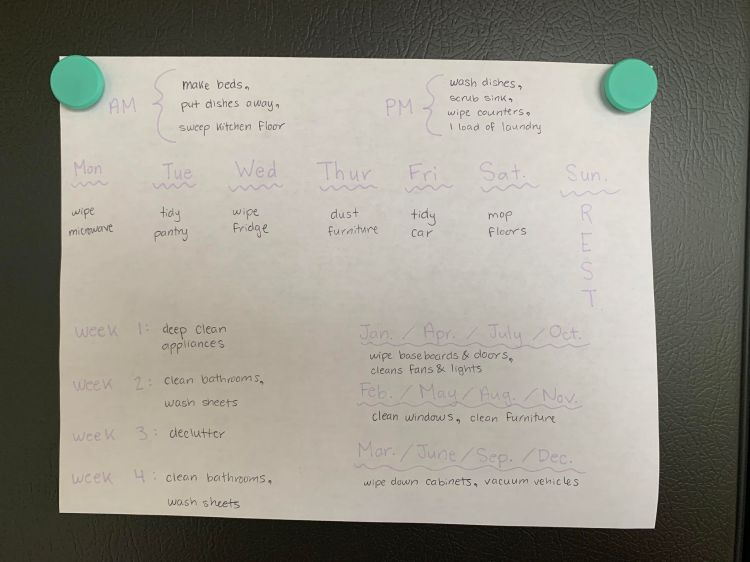 AM
make beds,
put dishes away,
sweep kitchen floor
PM
wash dishes,
scrub sink,
wipe counters,
1 load of laundry
Mon Tue Wed Thur Fri Sat. Sun.
wipe
microwave
tidy
pantry
wipe
fridge
dust
furniture
tidy
car
mop
floors
R
E
S
T
week 1: deep clean
appliances
week 2: clean bathrooms,
wash sheets
week 3: declutter
week 4: clean bathrooms,
wash sheets
Jan. / Apr. / July / Oct.
wipe baseboards & doors,
cleans fans & lights
Feb. / May / Aug. / Nov.
clean windows, clean furniture
Mar. / June / Sep. / Dec.
wipe down cabinets, vacuum vehicles